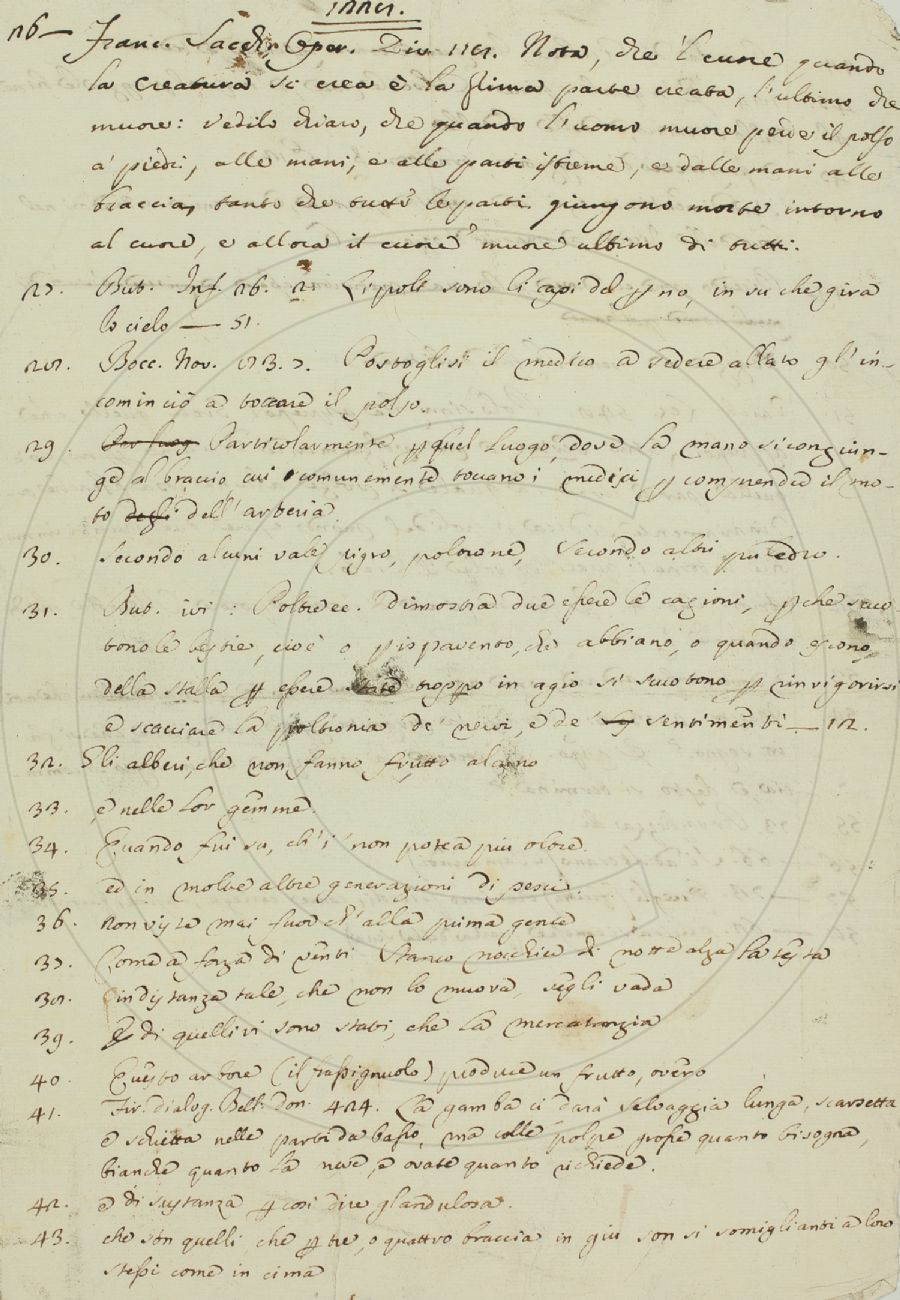 26 — Franc. Sacch. Oper. Div. 121. Nota, che 'l cuore quando
la creatura si crea è la prima parte creata, l'ultimo che
muore: vedilo chiaro, che quando l'uomo muore perde il polso
a' piedi, alle mani, e alle parti estreme, e dalle mani alle
braccia, tanto che tutte le parti giungono morte intorno
al cuore, e allora il cuore muore ultimo di tutti.
27. But. Inf. 26. 2. Li poli sono li capi del pno, in su che gira
lo cielo — 51.
28. Bocc. Nov. 83. 7. Postoglisi il medico a sedere allato gl'in-
cominciò a toccare il polso.
29. Per luog Particolarmente p quel luogo, dove la mano si congiun-
ge al braccio cui comunemente toccano i medici p comprendere il mo-
to degli dell'arteria.
30. Secondo alcuni vale pigro, poltrone, secondo altri puledro.
31. But. ivi: Poltre ec. dimostra due essere le cagioni, p che scuo-
tono le bestie, cioè o p ispavento, che abbiano, o quando escono
della stalla p essere state troppo in agio si scuotono p rinvigorirsi
e scacciare la poltronia de' nervi, e de' sentimenti — 12.
32. Gli alberi, che non fanno frutto alcuno
33. e nelle lor gemme.
34. Quando fui su, ch'i' non potea più oltre.
35. ed in molte altre generazioni di pesci.
36. non viste mai fuor ch'alla prima gente
37. Come a forza di venti Stanco nocchier di notte alza la testa
38. in distanza tale, che non lo muova, s'egli vada
39. E di quelli vi sono stati, che la mercatanzia
40. Questo arbore (il frassignuolo) produce un frutto, overo
41. Fir. dialog. Bell. don. 424. La gamba ci darà Selvaggia lunga, scarsetta
e schietta nelle parti da basso, ma colle polpe grosse quanto bisogna,
bianche quanto la neve, e ovate quanto richiede.
42. e di sustanza p così dire glandulosa.
43. che son quelli, che p tre, o quattro braccia in giù son si somiglianti a loro
stessi come in cima